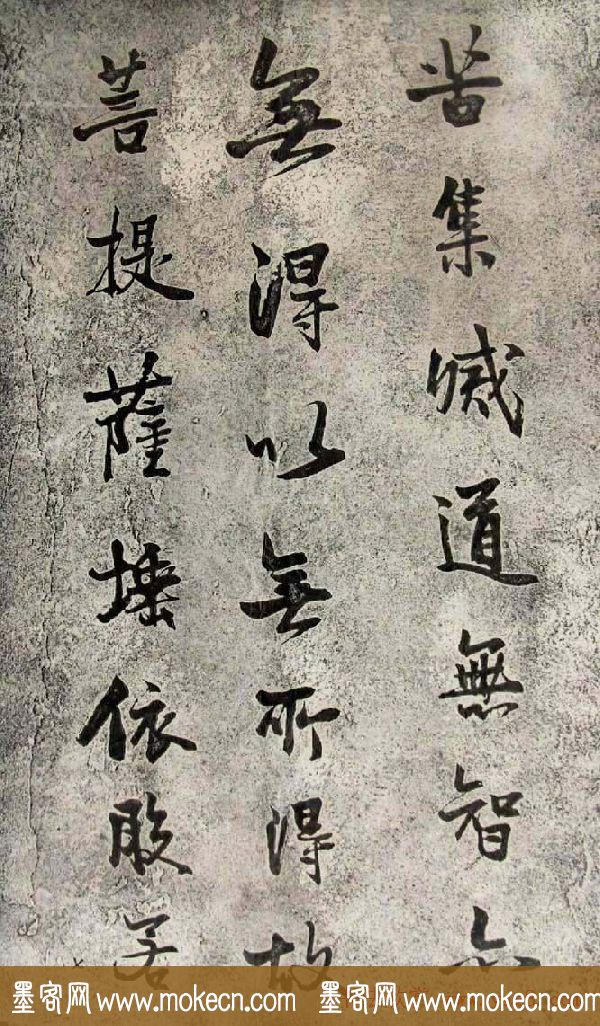 苦集滅道無智亦
無得以無所得故
菩提薩埵依般若
墨客网 www.mokecn.com 墨客网 www.mokecn.com